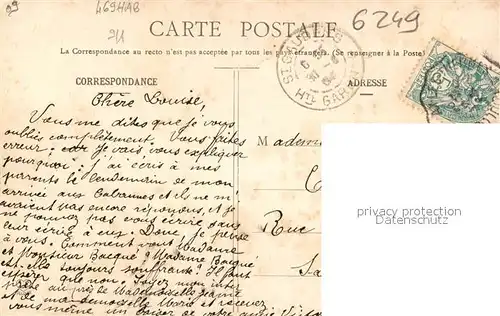 09
469HAB
911
6249
CARTE POSTALE
La Correspondance au recto n'est pas acceptée par tous les pays étrangers. (Se renseigner à la Poste)
CORRESPONDANCE
ADRESSE
HTE GAR
Chère Louise,
Vous me dites que je vous
oublie complètement. Vous faites
erreur: car je vais vous expliquer
pourquoi: j'ai écris à mes
parents le lendemain de mon
arrivée aux et ils ne m'
avaient pas encore répondus, et je
ne pouvez pas vous écrire sans
leur écrire à eux. Donc je pense
à vous. Comment vous Madame
et Monsieur Bacqué? Madame Bacqué
est-elle toujours souffrante? Il faut
espérer que non. Soyez mon
près de Mademoiselle Jeanne
et de mademoiselle Marie et recevez
vous même un baiser de votre amie
Madem
Rue
privacy protection
Datenschutz